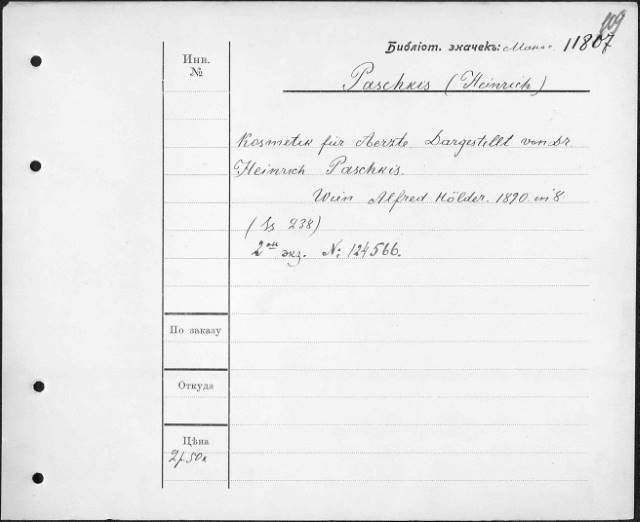 109
Библіот. значекъ: Монс. 11807
Инв.
№
Paschkis (Heinrich)
Kosmetik für Aerzte Dargestellt von Dr
Heinrich Paschkis.
Wien Alfred Hölder. 1890. in 8.
(Ss 238)
2ой экз. №: 124566.
По заказу
Откуда
Цѣна
2р 50к